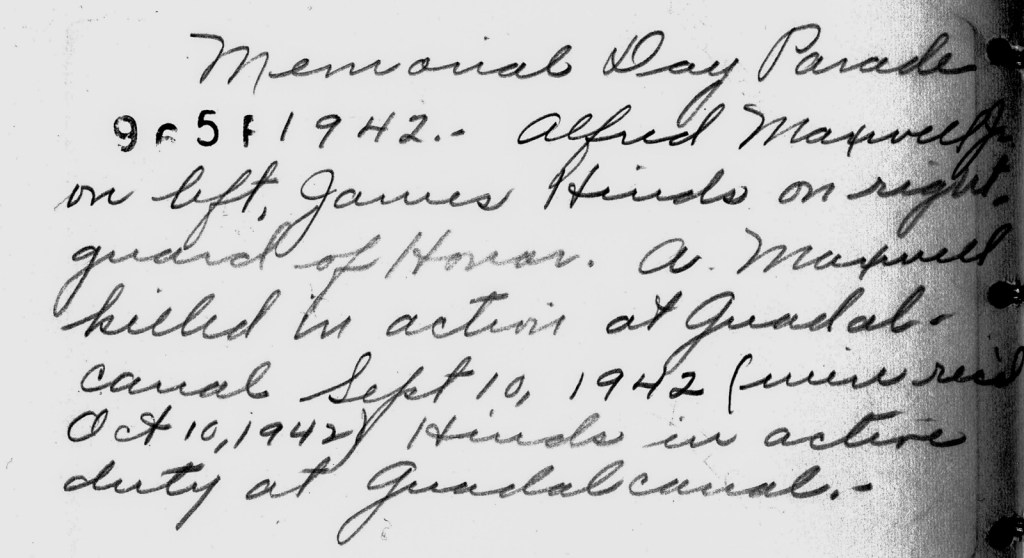 Memorial Day Parade
1942.- Alfred Maxwell Jr
on left, James Hinds on right.
guard of Honor. A. Maxwell
killed in action at Guadal-
canal Sept 10, 1942 (wire rec'd
Oct 10, 1942) Hinds in active
duty at Guadalcanal.-